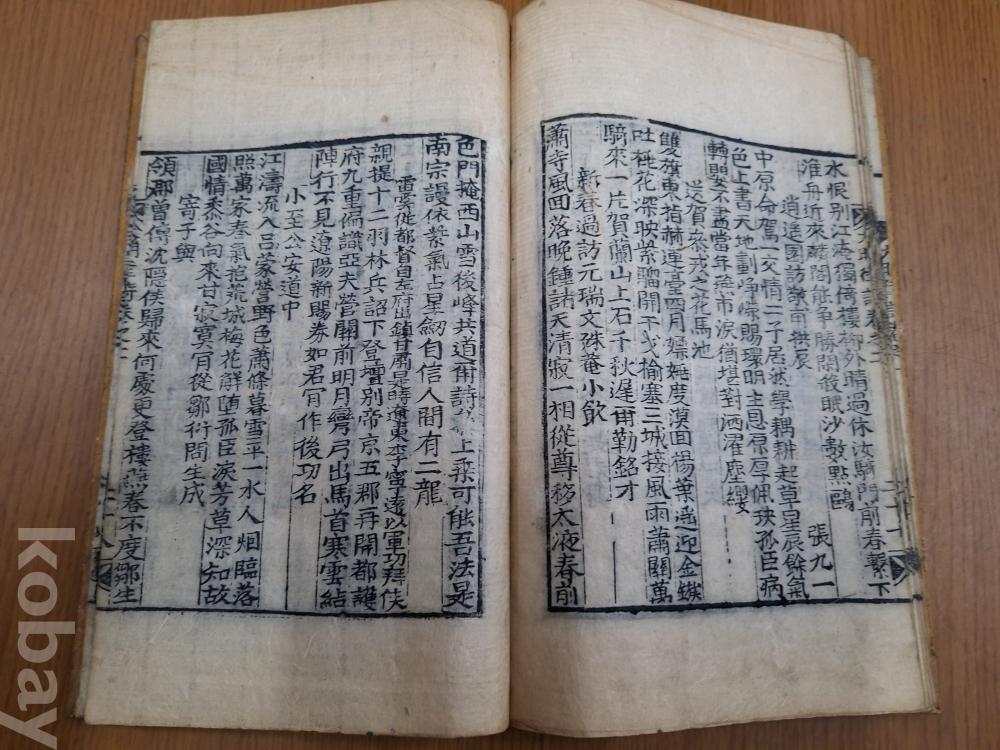 水恨別江淹獨倚樓柳外晴過休汝騎門前春繫下
淮舟近來麟閣能爭勝閒後眠沙數點鷗
逍遙園訪敬甫拱辰
張九一
中原命駕一交情二子居然學耦耕起草星辰餘氣
色上書天地畫崢嶸賜環明主恩原厚佩玦孤臣病
轉嬰不盡當年燕市淚猶堪對酒濯塵纓
送賀參戎之花馬池
雙旗東指赫連臺四月嫖姚度漠面楊葉遙迎金鏃
吐桃花深映紫騮開下戈榆塞三城接風雨蕭關萬
騎來一片賀蘭山上石千秋遲爾勒銘才
新春過訪元瑞文殊菴小飲
蕭寺風回落晚鍾諸天清寂一相從尊移太液春前
色門掩西山雪後峰共道甫詩 上乘可能吾法是
南宗謾依紫氣占星劒自信人間有二龍
寧遠以軍功拜侯
親提十二羽林兵詔下登壇別帝京五郡再開都護
府九重偏識亞夫營關前明月彎弓出馬首寒雲結
陣行不見遼陽新賜券如君肯作後功名
小至公安道中
江濤流入呂蒙營野色蕭條暮雪平一水人烟臨落
照萬家春氣抱荒城梅花解墮孤臣淚芳草深知故
國情黍谷向來甘寂寞肯從鄒衍問生成
寄子與
領郡曾傳沈隱侯歸來何處更登樓燕春不度鄒生